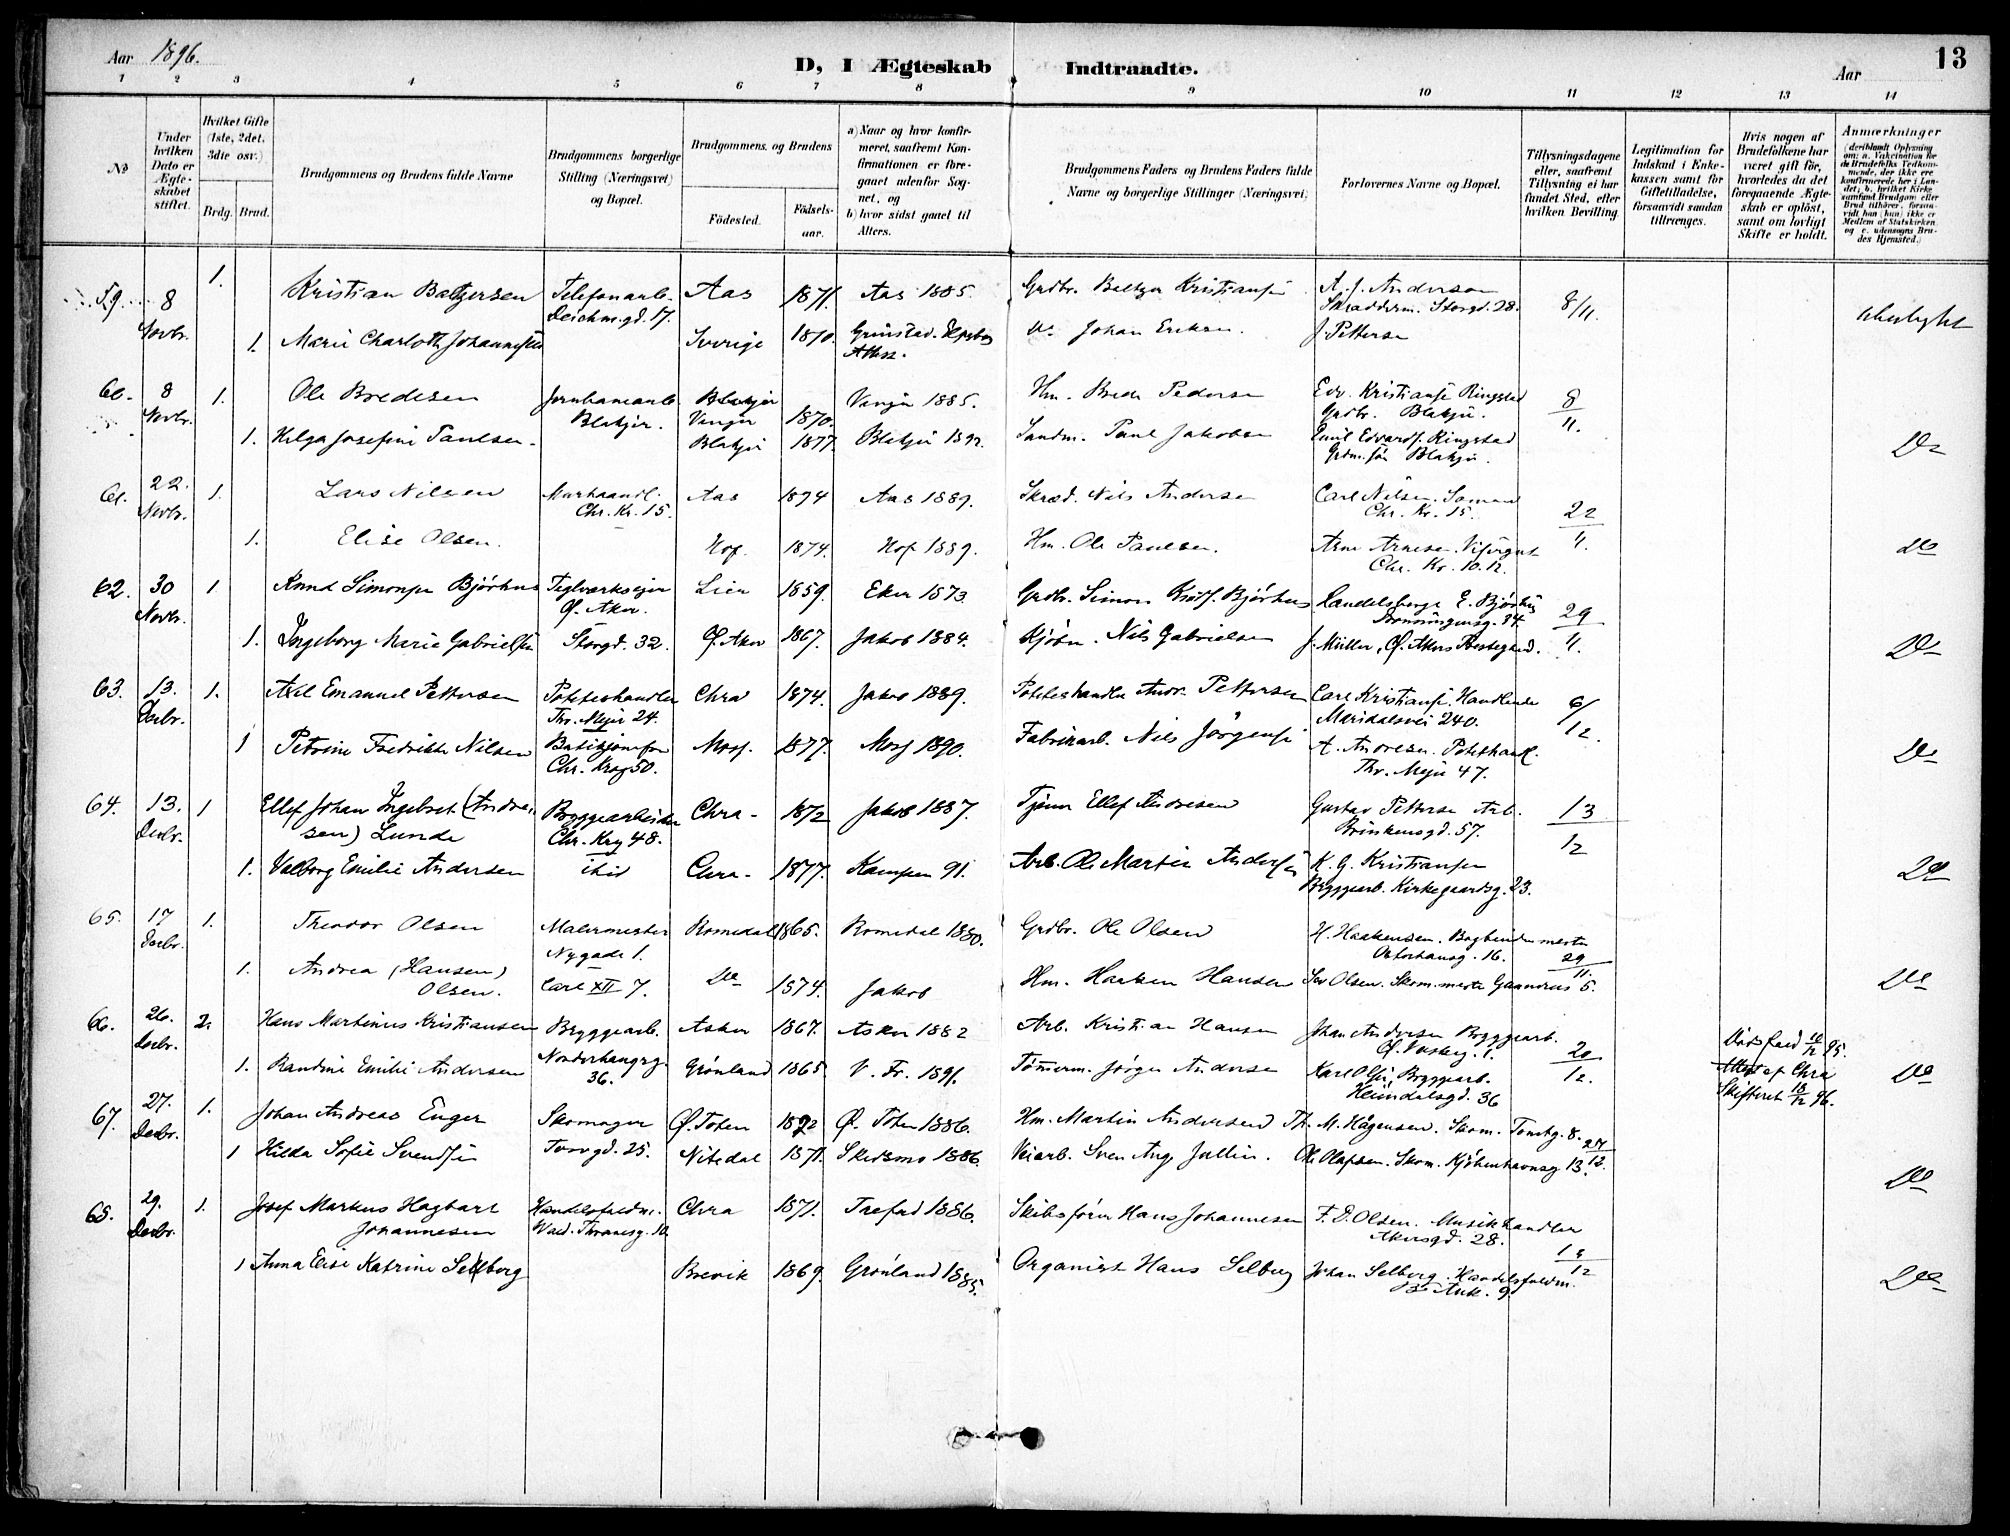 Aar 1896.
D, I Ægteskab Indtraadte.
Aar
13
1 2 3 4 5 6 7 8 9 10 11 12 13 14
No
Under hvilken Dato er Ægteskabet stiftet.
Hvilket Gifte (1ste, 2det, 3die osv.)
Brdg. Brud.
Brudgommens og Brudens fulde Navne
Brudgommens borgerlige Stilling (Næringsvei) og Bopæl.
Brudgommens og Brudens
Fødested.
Fødsels-aar.
a) Naar og hvor konfirmeret, saafremt Konfirmationen er foregaaet udenfor Sognet, og
b) hvor sidst gaaet til Alters.
Brudgommens Faders og Brudens Faders fulde Navne og borgerlige Stillinger (Næringsvei)
Forlovernes Navne og Bopæl.
Tillysningsdagene eller, saafremt Tillysning ei har fundet Sted, efter hvilken Bevilling.
Legitimation for Indskud i Enkekassen samt for Giftetilladelse, forsaavidt saadan tiltrænges.
Hvis nogen af Brudefolkene har været gift før, hvorledes da det foregaaende Ægteskab er opløst, samt om lovligt Skifte er holdt.
Anmærkninger (deriblandt Oplysning om: a. Vakcination for de Brudefolks Vedkommende, der ikke ere konfirmerede her i Landet; b. hvilket Kirkesamfund Brudgom eller Brud tilhører, forsaavidt han (hun) ikke er Medlem af Statskirken, og c. udensogns Brudes Hjemsted.)
59. 8 1. Kristian Baltzersen Telefonarb. Aas 1871. Aas 1885. Grdbr. Baltzer Kristiansen A. J. Anderson 8/11.
Novbr. Deichm.gd. 17. Skræddrm. Storgd. 28.
1. Marie Charlotte Johannesen Sverige 1870. Grimstad. Do Johan Eriksen. J. Petterse
Attest.
60. 8 1. Ole Bredesen Jernbanearb. Blakjer Venjer 1885. Hm. Brede Pederse Edv. Kristianse Ringstad 8
Novbr. Blakjer. 1870. Grdbr. Blakjer. 11.
1. Helga Josefine Paulsen. Blakjer 1877. Blakjer 1892. Sandm. Paul Jakobsen Emil Edvards. Ringstad Do
Blakjer.
61. 22. 1. Lars Nilsen Murhaandl. Aas 1874 Aas 1889. Skræd. Nils Anderse Carl Nilsen. Sømand 22
Novbr. Chr. Kr. 15. Chr. Kr. 15. 11.
1. Elise Olsen. Hof. 1874. Hof 1889. Hm. Ole Paulsen. Arne Arnesen. Do
Chr. Kr. 10.
62. 30 1 Knud Simonsen Bjørhus Teglværkseier Lier 1859. Eker 1873 Grdbr. Simon Bjørhus Handelsborge E. Bjørhus 29
Novbr. Ø. Aker. Dronningensg. 34. 11.
1. Ingeborg Marie Gabrielsen Storgd. 32. Ø. Aker 1867. Jakob 1884. Kjøbm. Nils Gabrielsen J. Müller, Ø. Akers Prestegaard. Do
63. 13. 1. Axel Emanuel Pettersen Poteteshandler Chra 1874. Jakob 1889. Poteteshandler Andr. Pettersen Carl Kristianse. Handlende 6/12.
Decbr. Thv. Meyer 24. Maridalsvei 240.
1 Petrine Fredrikke Nilsen Butikjomfru Moss. 1877. Moss 1890. Fabrikarb. Nils Jørgense A. Andresen. Potethandl. Do
Chr. Krog 50. Thv. Meyer 47.
64. 13. 1 Ellef Johan Ingebret (Andre- Bryggearbeider Chra- 1872 Jakob 1887. Tjener Ellef Andresen Gustav Petterse Arb. 13
Decbr. sen) Lunde Chr. Krg 48. Brinkensgd. 57. 12
1. Valborg Emilie Andersen ibid Chra- 1877. Kampen 91. Arb. Ole Martin Andersen K. G. Kristiansen Do
Bryggearb. Kirkegaardsg. 23.
65. 17 1. Theodor Olsen Malermester Romedal 1865. Romedal 1880. Grdbr. Ole Olsen H. Haakensen. Bogbindermester
Decbr. Nygade 1. 16. 29
1. Andrea (Hansen) Carl XII 7. Do 1874. Jakob Hm. Haaken Hansen Olsen. Skom.mester 5. 11. Do
Olsen.
66. 26. 2. Hans Martinius Kristiansen Bryggearb. Asker 1867. Asker 1882 Arb. Kristian Hansen Johan Andersen Bryggearb. Dødsfald 16/12 95.
Decbr. Nonderhaugsg. 1. 20
1. Randine Emilie Andersen 36. Grønland 1865 V. Fr. 1891. Tømmerm. Jørgen Anderse Karl Olsen, Bryggearb. 12. Attest af Chra Do
Heimdalsgd. 36 Skifteret 18/12 96.
67. 27. 1. Johan Andreas Enger Skomager Ø. Toten 1872 Ø. Toten 1886. Hm. Martin Andersen Th. M. Hågensen. Skom. Tomtg. 8. 27
Decbr. 1 Hilda Sofie Svendsen Torvgd. 25. Nitedal 1871. Skedsmo 1886. Veiarb. Sven Aug. Jallin. Ole Olafsen. Skom. Kjøbenhavnsg. 13. 12. Do
68. 29. 1. Josef Markus Hagbart Handelsfuldm. Chra 1871. Trefod 1886. Skibsfører Hans Johannesen F. D. Olsen. Musikhandler
Decbr. Johannesen Vald. Thranesg. 10. Akersgd. 28.
1 Anna Elise Katrine Selberg Brevik 1869. Grønland 1885. Organist Hans Selberg Johan Selberg. Handelsfuldm. 12 Do
9.